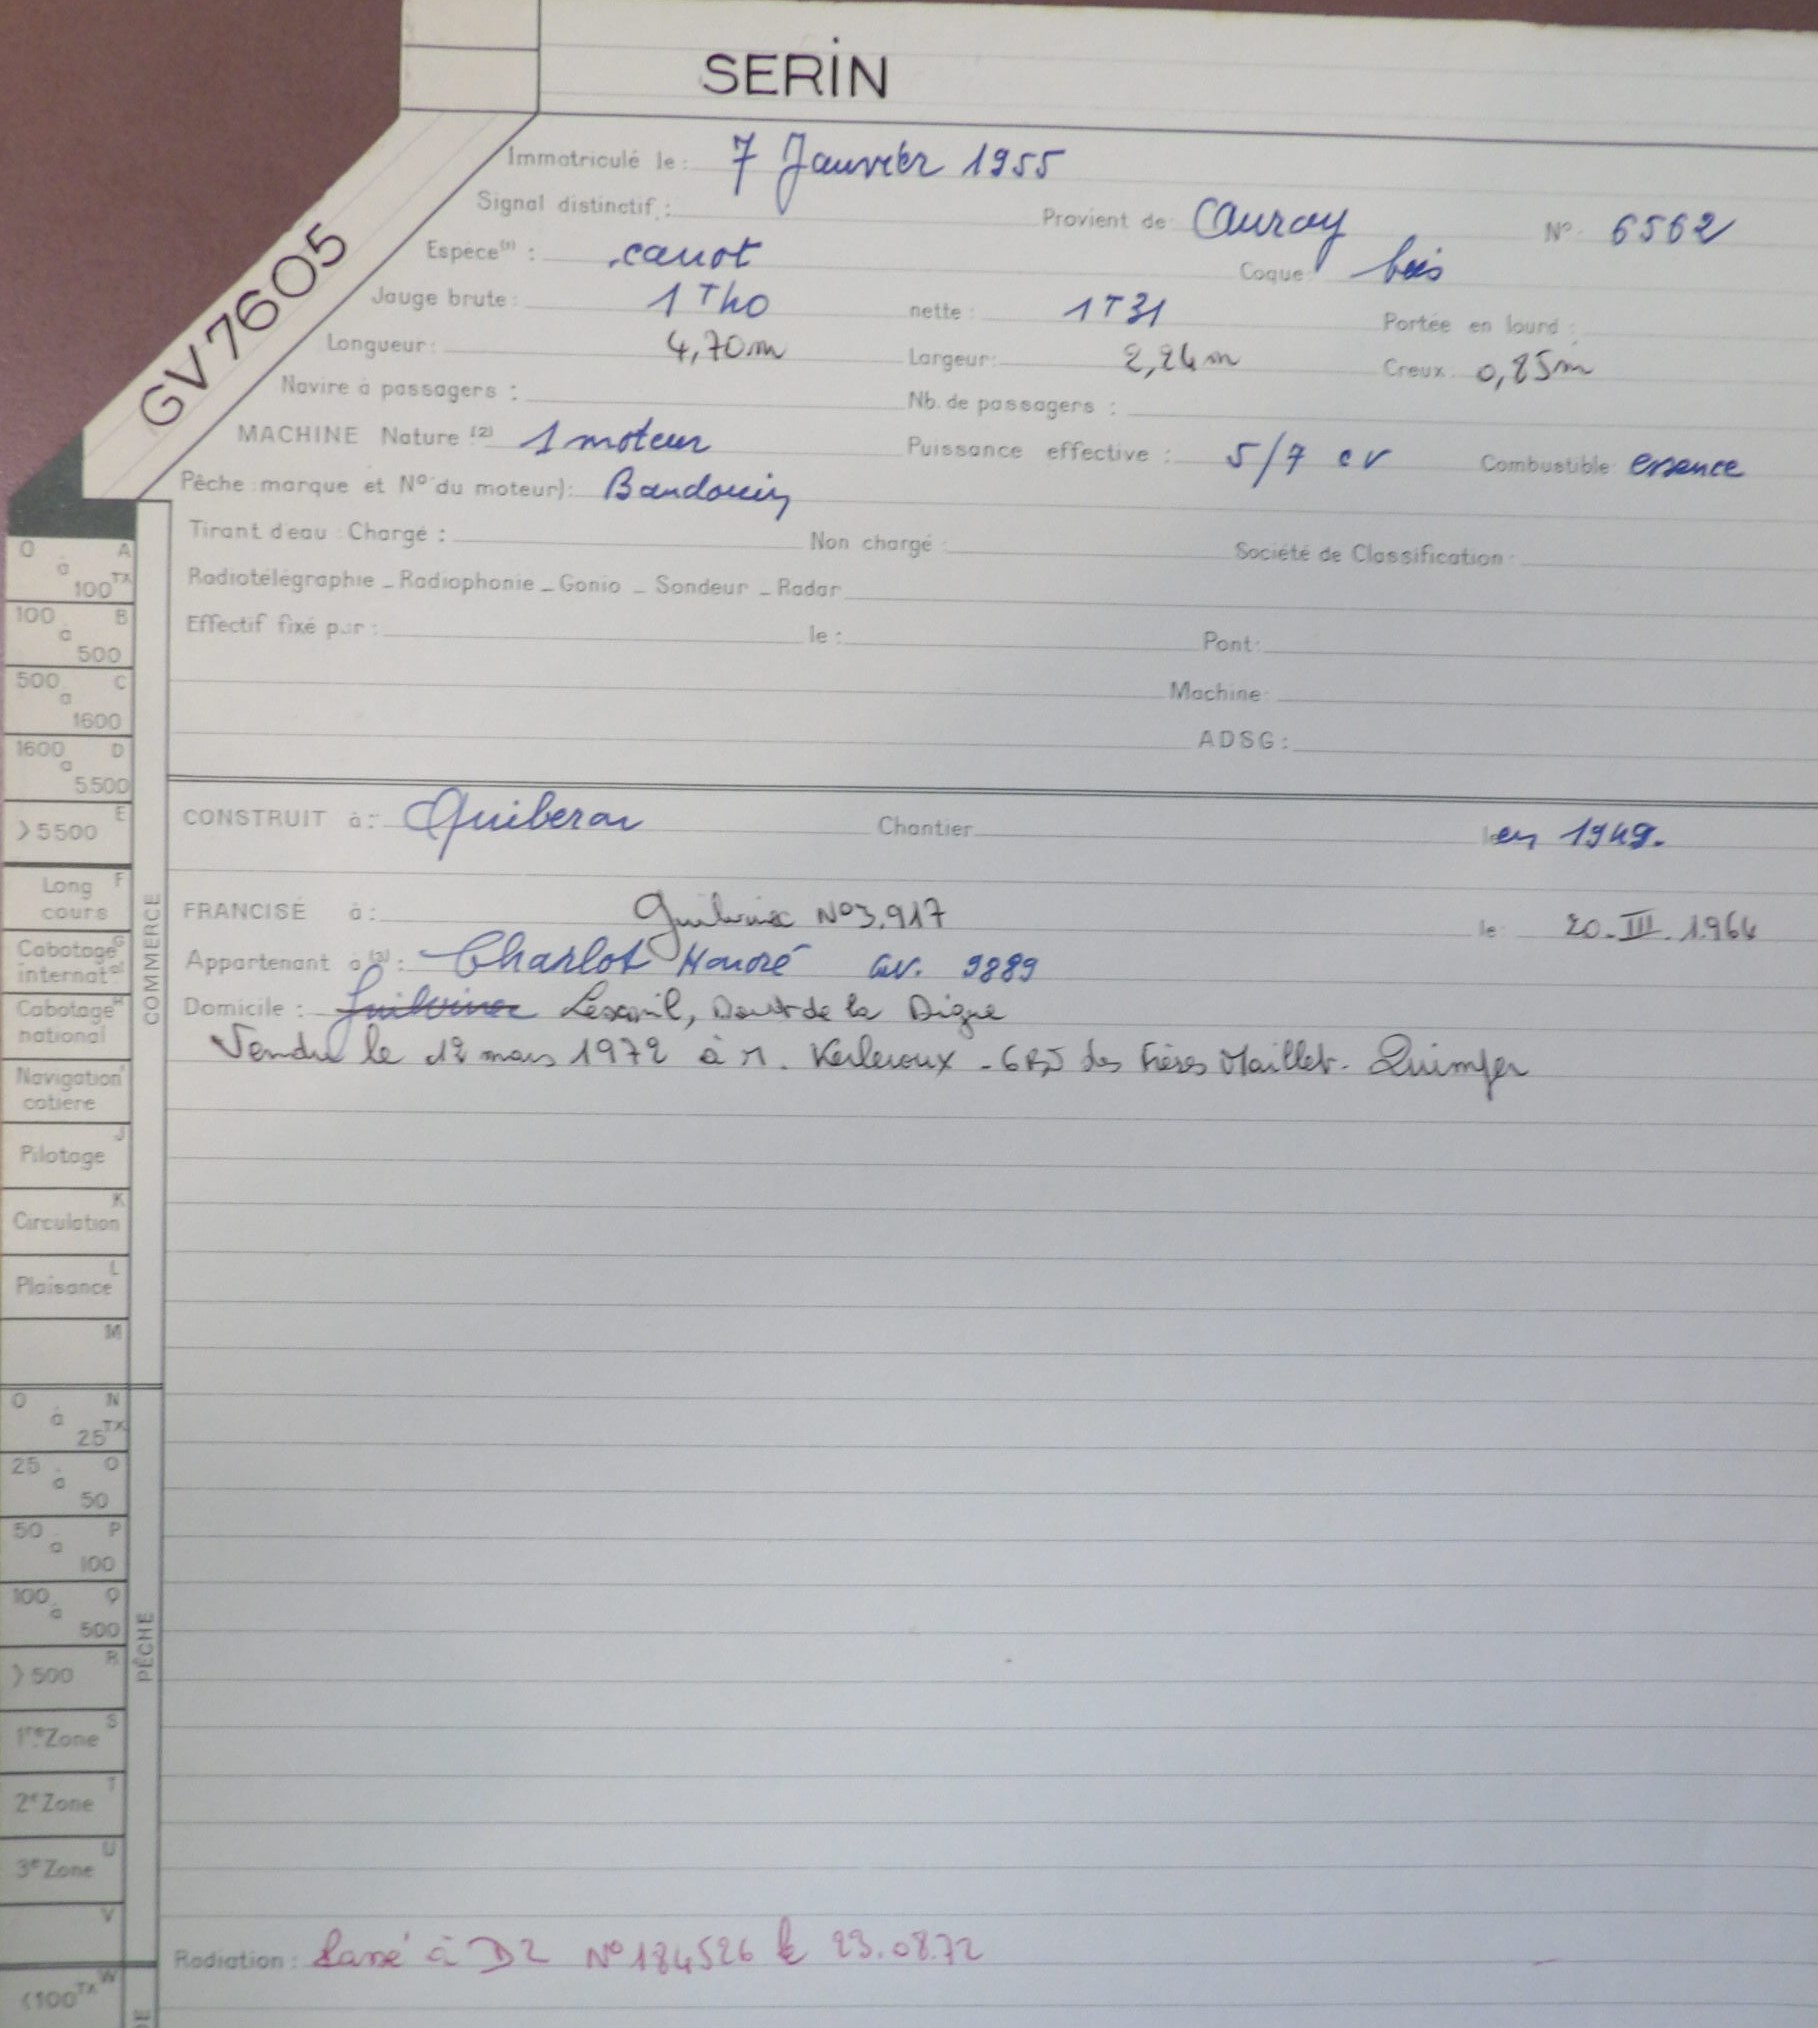 SERIN
GV 7605
Immatriculé le : 7 Janvier 1955
Signal distinctif : Provient de Auray No 6562
Espèce(1) : canot Coque bois
Jauge brute : 1 T 40 nette : 1 T 31 Portée en lourd :
Longueur : 4,70 m Largeur : 2,24 m Creux : 0,85 m
Navire à passagers : Nb. de passagers :
MACHINE Nature (2) 1 moteur Puissance effective : 5/7 cv Combustible essence
Pêche : marque et No du moteur) : Baudouin
Tirant d'eau : Chargé : Non chargé : Société de Classification :
Radiotélégraphie _ Radiophonie _ Gonio _ Sondeur _ Radar
Effectif fixé par : le : Pont :
Machine :
ADSG :
CONSTRUIT à : Quiberon Chantier en 1949.
FRANCISÉ à : Guilvinec No 3.917 le 20.III.1964
Appartenant à (3) : Charlot Honoré GV. 9889
Domicile : Guilvinec Lesconil, de la Digue
Vendu le 12 mars 1972 à M. Kerleroux - 6 des Frères Maillet - Quimper
Radiation : Passé à D2 No 184526 le 23.08.72
COMMERCE
0 à 100 TX A
100 à 500 B
500 à 1600 C
1600 à 5.500 D
>5500 E
Long cours F
Cabotage internat al G
Cabotage national H
Navigation cotière I
Pilotage J
Circulation K
Plaisance L
M
PÊCHE
0 à 25 TX N
25 à 50 O
50 à 100 P
100 à 500 Q
>500 R
1re Zone S
2e Zone T
3e Zone U
V
<100 TX W